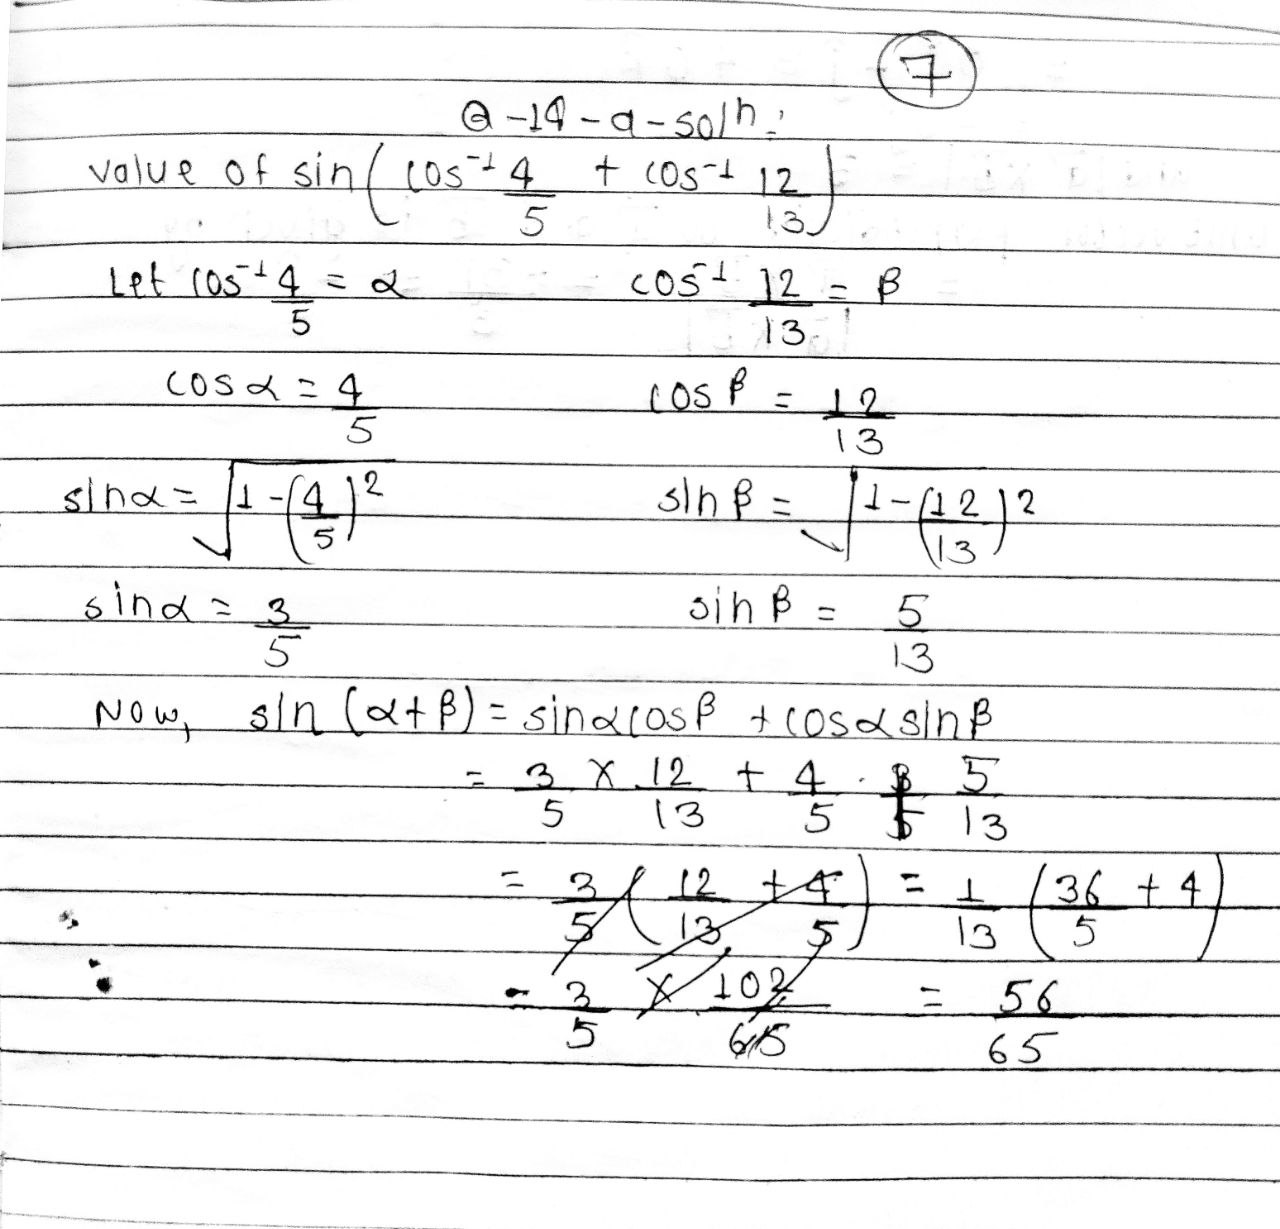 7
Q-14-a-soln:
value of sin(cos⁻¹ 4/5 + cos⁻¹ 12/13)
Let cos⁻¹ 4/5 = α cos⁻¹ 12/13 = β
cos α = 4/5 cos β = 12/13
sin α = √1-(4/5)² sin β = √1-(12/13)²
sin α = 3/5 sin β = 5/13
Now, sin (α+β) = sin α cos β + cos α sin β
= 3/5 × 12/13 + 4/5 · 5/13
= 3/5 (12/13 + 4/5) = 1/13 (36/5 + 4)
= 3/5 × 102/65 = 56/65